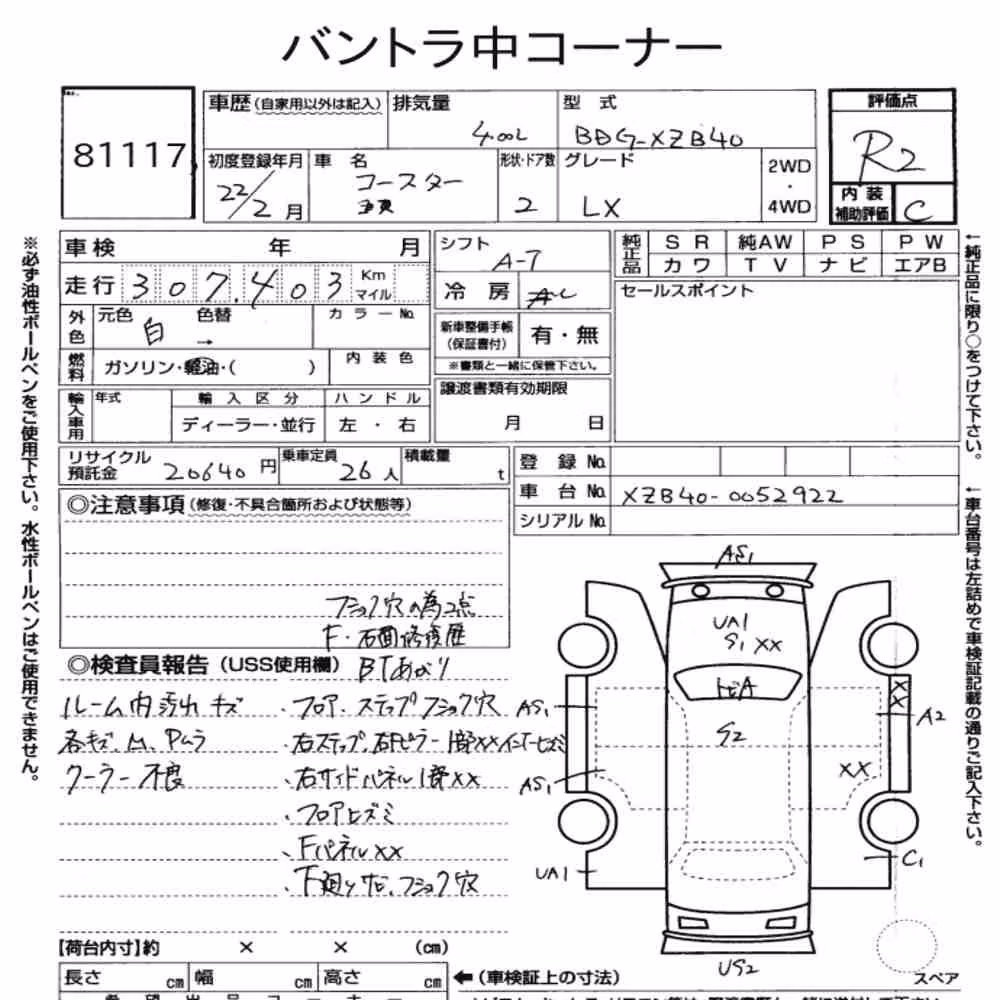 バントラ中コーナー
81117
車歴 (自家用以外は記入)
排気量
4.00L
型 式
BDG-XZB40
評価点
R2
内装補助評価
C
初度登録年月
22/2 月
車 名
コースター
形状・ドア数
2
グレード
LX
2WD
・
4WD
車検 年 月
走行 307,403 Km マイル
外色 元色 白 色替 → カラーNo.
燃料 ガソリン・軽油・( ) 内装色
輸入車用 年式 輸入区分 ハンドル
ディーラー・並行 左・右
シフト
A-T
冷房
AC
新車整備手帳
(保証書付)
有・無
※書類と一緒に保管下さい。
譲渡書類有効期限
月 日
純正品 SR 純AW PS PW
カワ TV ナビ エアB
セールスポイント
リサイクル預託金 20640 円
乗車定員 26 人
積載量 t
登録No.
車台No. XZB40-0052922
シリアルNo.
◎注意事項 (修復・不具合箇所および状態等)
フショク穴の為2点
F・右面修復歴
◎検査員報告 (USS使用欄) BTあがり
ルーム内汚れ キズ
・フロア.ステップフショク穴
各キズ.凹.Pムラ
・右ステップ.右Fピラー1部XX
クーラー不良
・右サイドパネル1部XX
・フロアヒズミ
・FパネルXX
・下廻りサビ.フショク穴
AS1
UA1
S1 XX
トビA
S2
AS1
AS1
UA1
X
X
A2
XX
C1
US2
スペア
【荷台内寸】約 × × (cm)
長さ cm 幅 cm 高さ cm
← (車検証上の寸法)
※必ず油性ボールペンをご使用下さい。水性ボールペンはご使用できません。
←純正品に限り○をつけて下さい。
←車台番号は左詰めで車検証記載の通りご記入下さい。